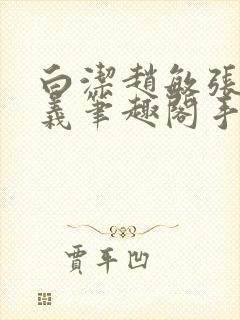 白潔趙敏張
義筆趣閣手
賈平凹